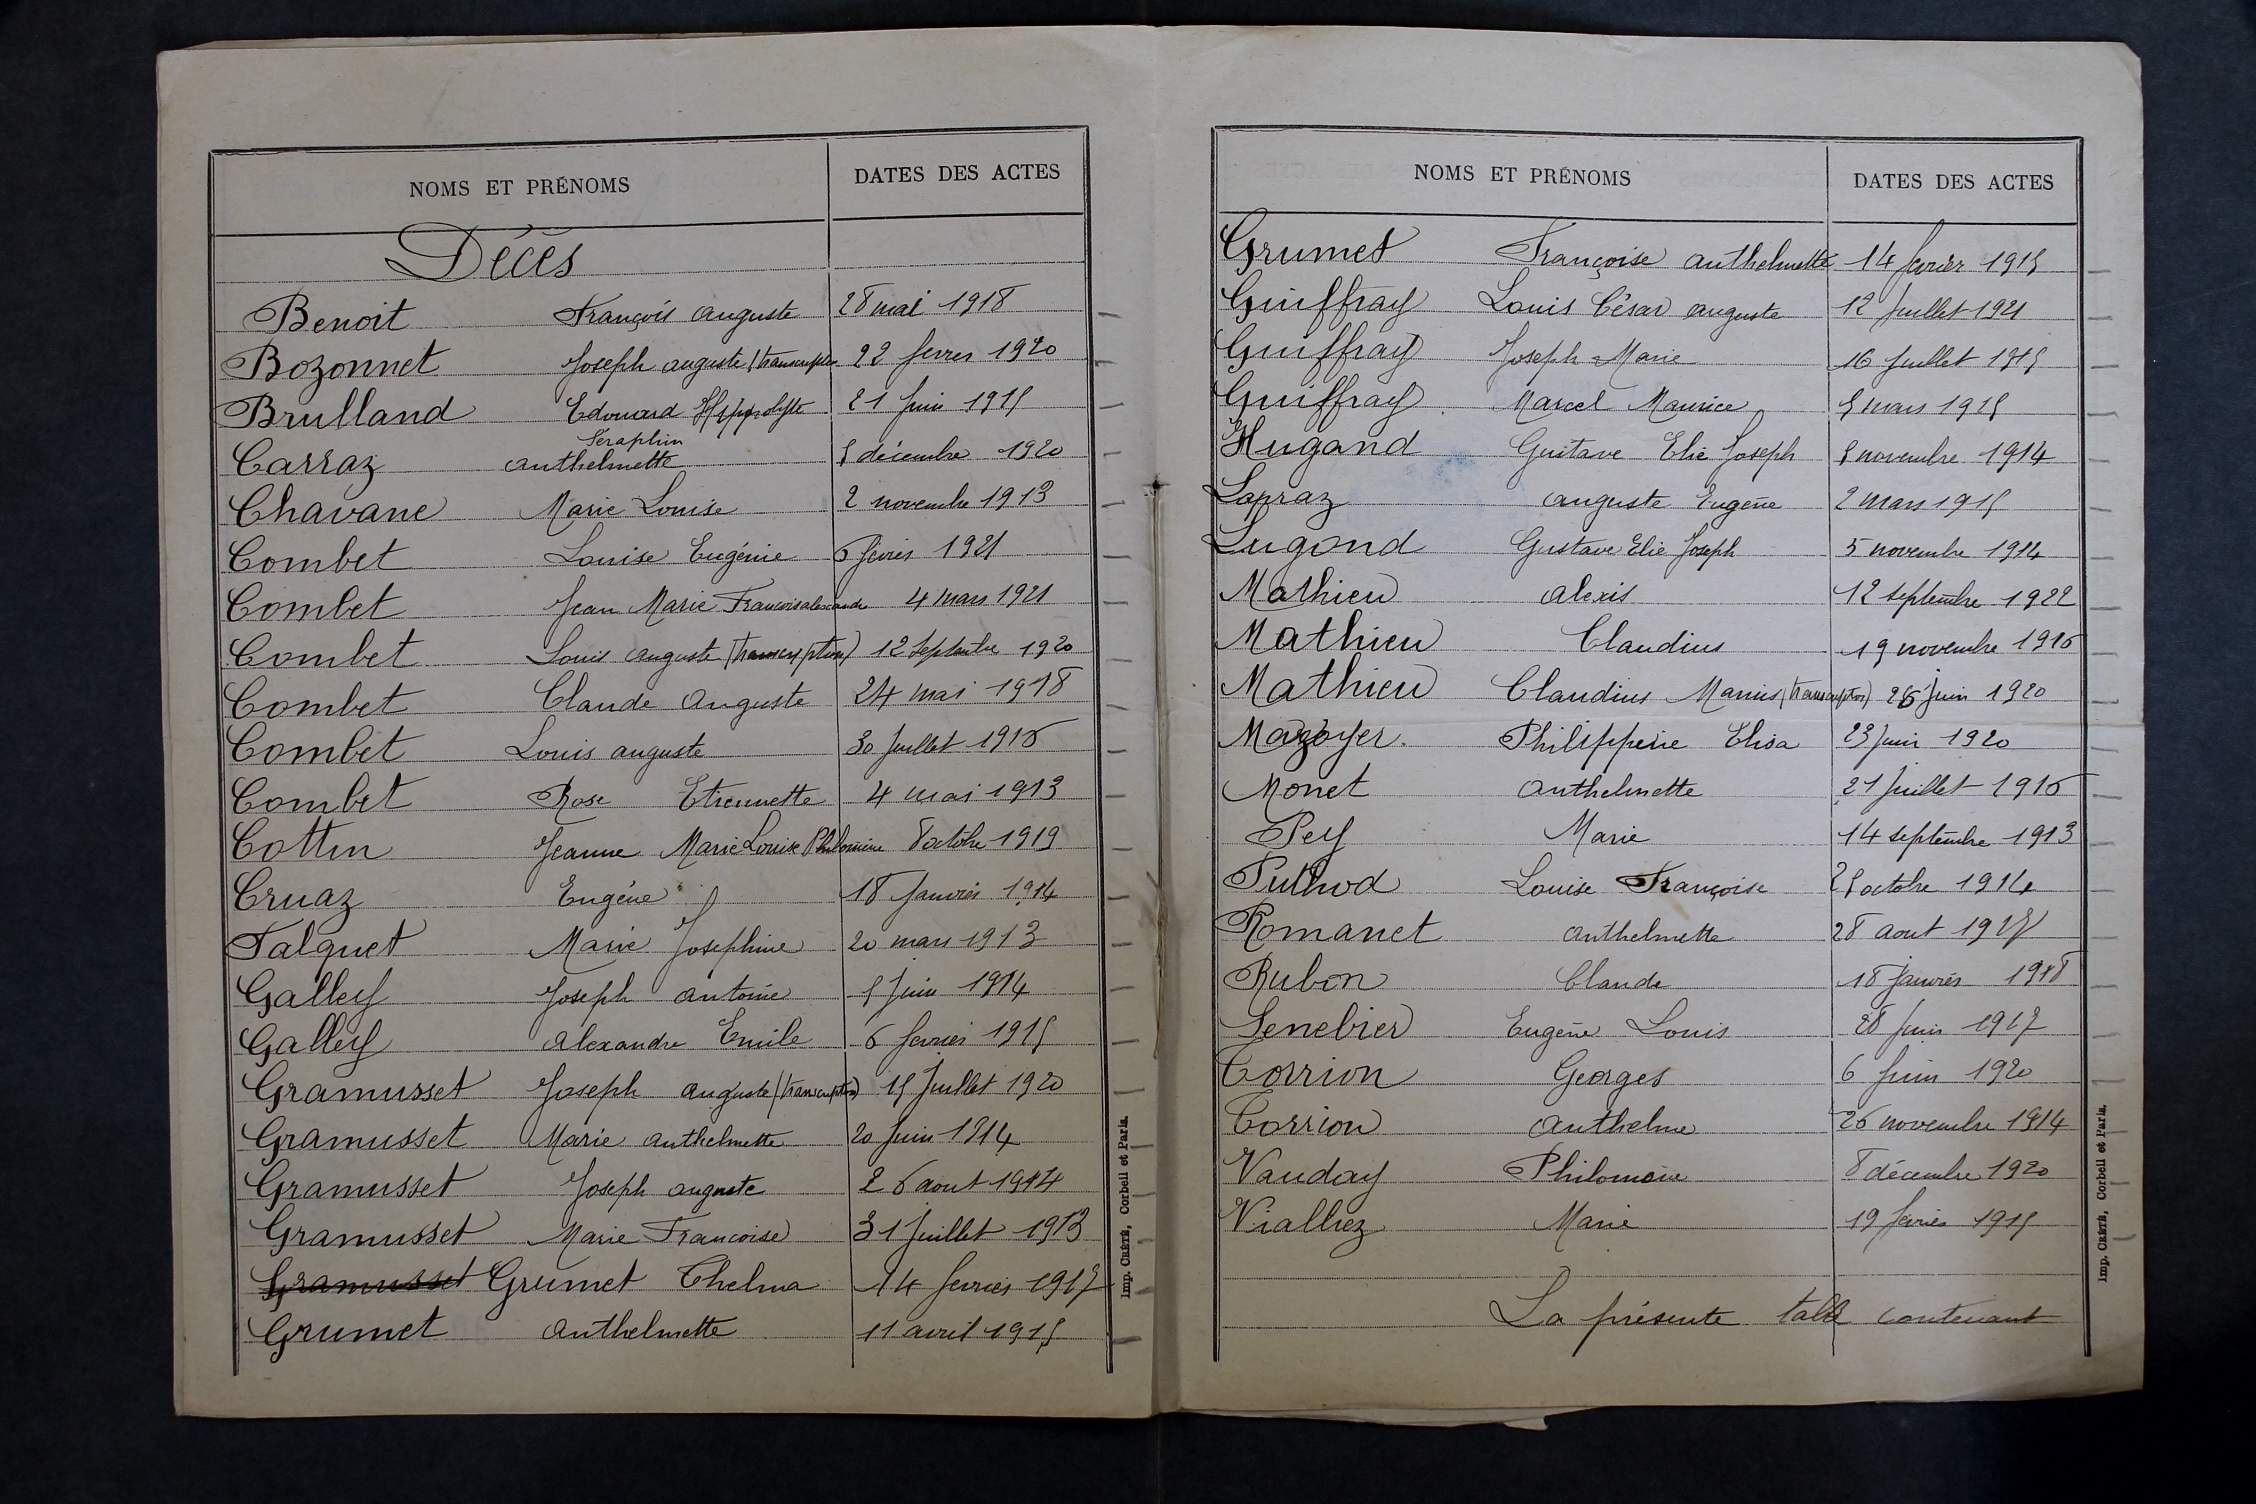 NOMS ET PRÉNOMS DATES DES ACTES
Décès
Benoit François auguste 28 mai 1918
Bozonnet Joseph auguste (transcription 22 fevrier 1920
Brulland Edouard Hyppolyte 21 juin 1915
Séraphin
Carraz anthelmette 5 décembre 1920
Chavane Marie Louise 2 novembre 1913
Combet Louise Eugénie 6 février 1921
Combet Jean Marie Francois alexandre 4 mars 1921
Combet Louis auguste (transcription) 12 Septembre 1920
Combet Claude Auguste 24 mai 1918
Combet Louis auguste 30 juillet 1916
Combet Rose Etiennette 4 mai 1913
Cottin Jeanne Marie Louise Philomine 8 octobre 1919
Cruaz Eugène 18 Janvier 1914
Falquet Marie Josephine 20 mars 1913
Galley Joseph antoine 5 Juin 1914
Galley alexandre Emile 6 fevrier 1915
Gramusset Joseph auguste (transcription) 15 Juillet 1920
Gramusset Marie anthelmette 20 Juin 1914
Gramusset Joseph auguste 26 aout 1914
Gramusset Marie Francoise 31 Juillet 1913
Gramusset Grumet Thelma 14 fevrier 1917
Grumet anthelmette 11 avril 1915
Imp. CRÉTÉ, Corbeil et Paris.
NOMS ET PRÉNOMS DATES DES ACTES
Grumet Françoise anthelmette 14 fevrier 1915
Guiffray Louis César auguste 12 Juillet 1921
Guiffray Joseph Marie 16 Juillet 1915
Guiffray Marcel Maurice 5 mars 1915
Hugand Gustave Elie Joseph 5 novembre 1914
Lapraz auguste Eugène 2 mars 1915
Lugand Gustave Elie Joseph 5 novembre 1914
Mathieu alexis 12 septembre 1922
Mathieu Claudius 19 novembre 1916
Mathieu Claudius Marius (transcription) 26 Juin 1920
Mazoyer Philippine Elisa 23 juin 1920
Monet anthelmette 21 Juillet 1916
Pey Marie 14 septembre 1913
Puthod Louise Françoise 25 octobre 1914
Romanet anthelmette 28 aout
Rubin Claude 18 Janvier 1918
Senebier Eugène Louis 28 Juin 1917
Torrion Georges 6 Juin 1920
Torrion anthelme 26 novembre 1914
Vauday Philomène 8 décembre 1920
Vialliez Marie 19 février 1915
La présente table contenant
Imp. CRÉTÉ, Corbeil et Paris.